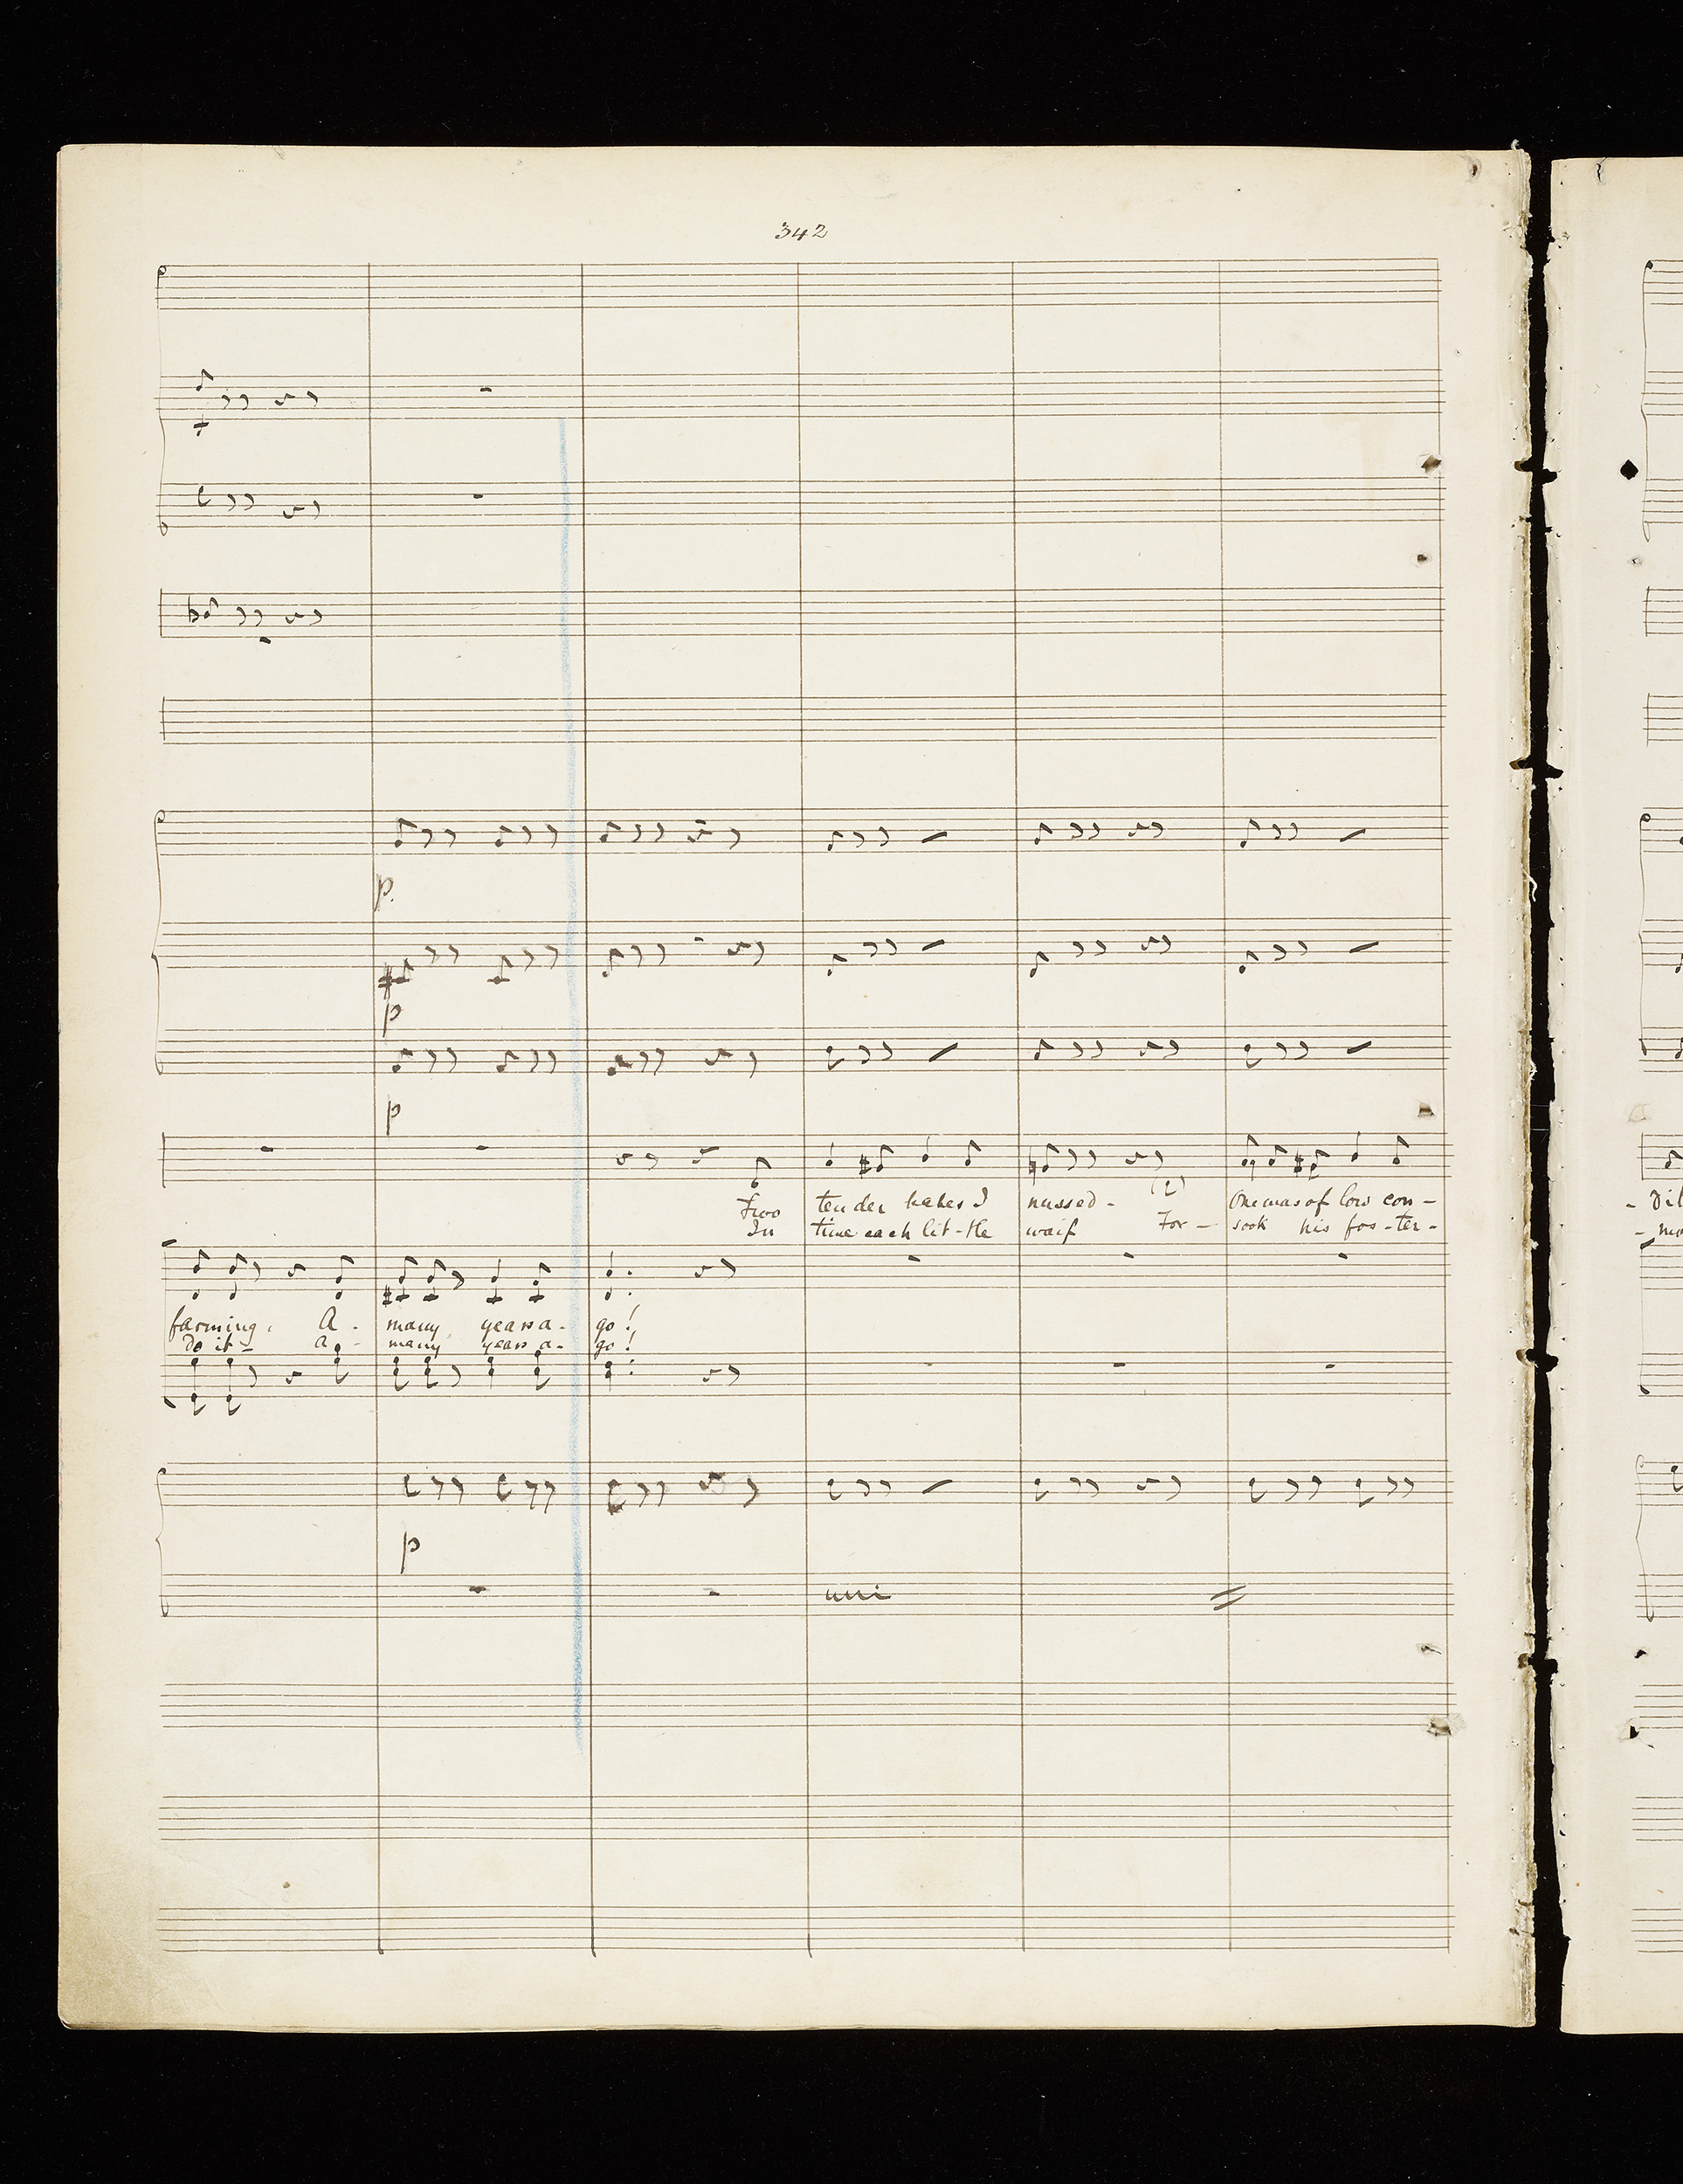 342
p.
p
p
(2)
Two tender babes I nussed - One was of low con -
In time each lit - tle waif For - sook his fos - ter -
- Dil
- mo
farming. A - many years a - go!
Do it - a - many years a - go!
p
uni